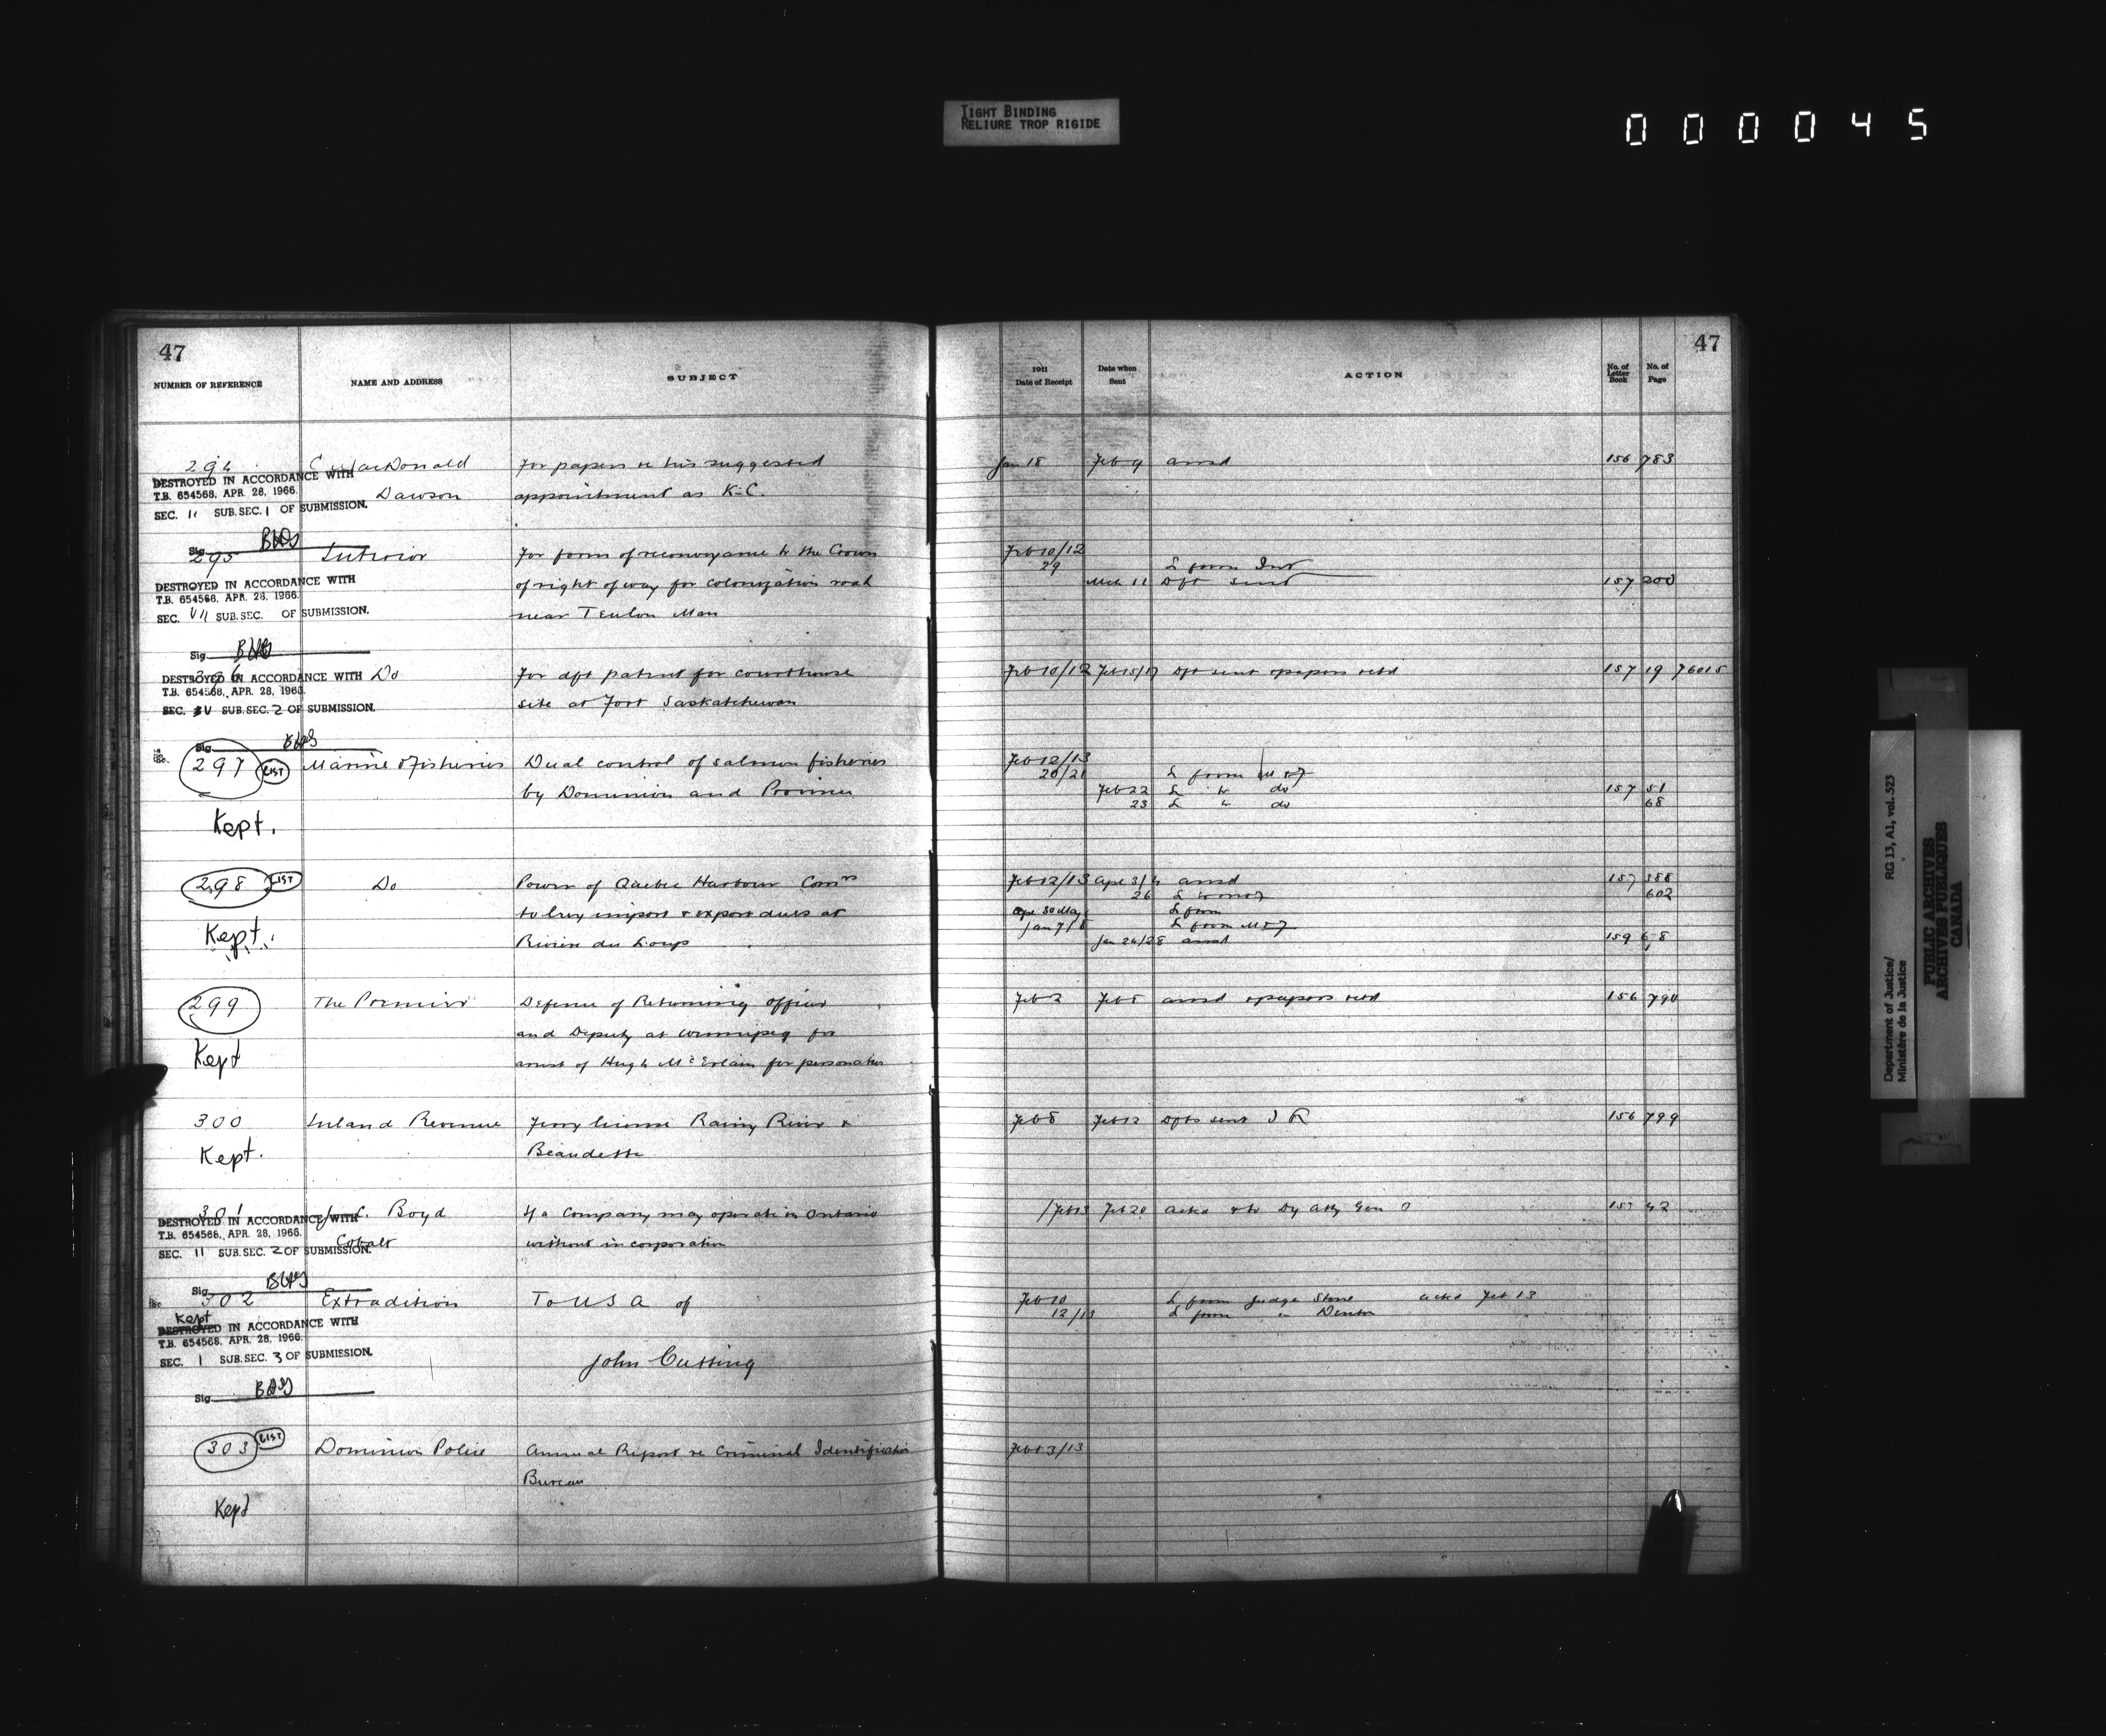 TIGHT BINDING
RELIURE TROP RIGIDE
000045
47
NUMBER OF REFERENCE NAME AND ADDRESS SUBJECT
294 MacDonald For papers re his suggested
DESTROYED IN ACCORDANCE WITH
T.B. 654568, APR. 28, 1966. Dawson appointment as K.C.
SEC. 11 SUB. SEC. 1 OF SUBMISSION.
Sig.
295 Interior For form of reconveyance to the Crown
DESTROYED IN ACCORDANCE WITH of right of way for colonization road
T.B. 654568, APR. 28, 1966.
SEC. VII SUB. SEC. OF SUBMISSION. near Teulon Man
Sig.
296 Do For dft patent for courthouse
DESTROYED IN ACCORDANCE WITH
T.B. 654568, APR. 28, 1966.
SEC. SUB. SEC. 2 OF SUBMISSION. site at Fort Saskatchewan
Sig.
297 LIST Marine & Fisheries Dual control of salmon fisheries
by Dominion and Province
Kept.
298 LIST Do Power of Quebec Harbour Comrs
to levy import & export dues at
Kept. Riviere du Loup
299 The Premier Defence of Returning Officer
and Deputy at Winnipeg for
Kept arrest of Hugh for personation
300 Inland Revenue Ferry license Rainy River &
Kept. Beaudette
301 Boyd If a Company may operate in Ontario
DESTROYED IN ACCORDANCE WITH
T.B. 654568, APR. 28, 1966. Cobalt without incorporation
SEC. 11 SUB. SEC. 2 OF SUBMISSION.
Sig.
302 Extradition To U S A of
Kept
DESTROYED IN ACCORDANCE WITH
T.B. 654568, APR. 28, 1966.
SEC. 1 SUB. SEC. 3 OF SUBMISSION. John Cutting
Sig.
303 LIST Dominion Police Annual Report re Criminal Identification
Bureau
Kept
47
1911 Date of Receipt Date when Sent ACTION No. of Letter Book No. of Page
Jan 18 Feb 9 ansd 156 783
Feb 10/12
29 L from Int
Mch 11 Dft sent 157 200
Feb 10/12 Feb 15/17 Dft sent & papers retd 157 19 76015
Feb 12/13
20/21 L from M & F
Feb 22 L to do 157 51
23 L " do 68
Feb 12/13 Apr 3/4 ansd 157 388
26 L to M & F 602
Apr 30 May L from
Jan 7/8 L from M & F
Jan 24/28 ansd 159
Feb 2 Feb ansd & papers retd 156 790
Feb 8 Feb 12 Dfts sent I R 156 799
Feb 13 Feb 20 ackd & to Dy Atty Gen O 157 42
Feb 10 L from Judge Stone ackd Feb 13
12/13 L from " Denton
Feb 13/13
Department of Justice/ RG 13, A1, vol. 523
Ministère de la Justice
PUBLIC ARCHIVES
ARCHIVES PUBLIQUES
CANADA